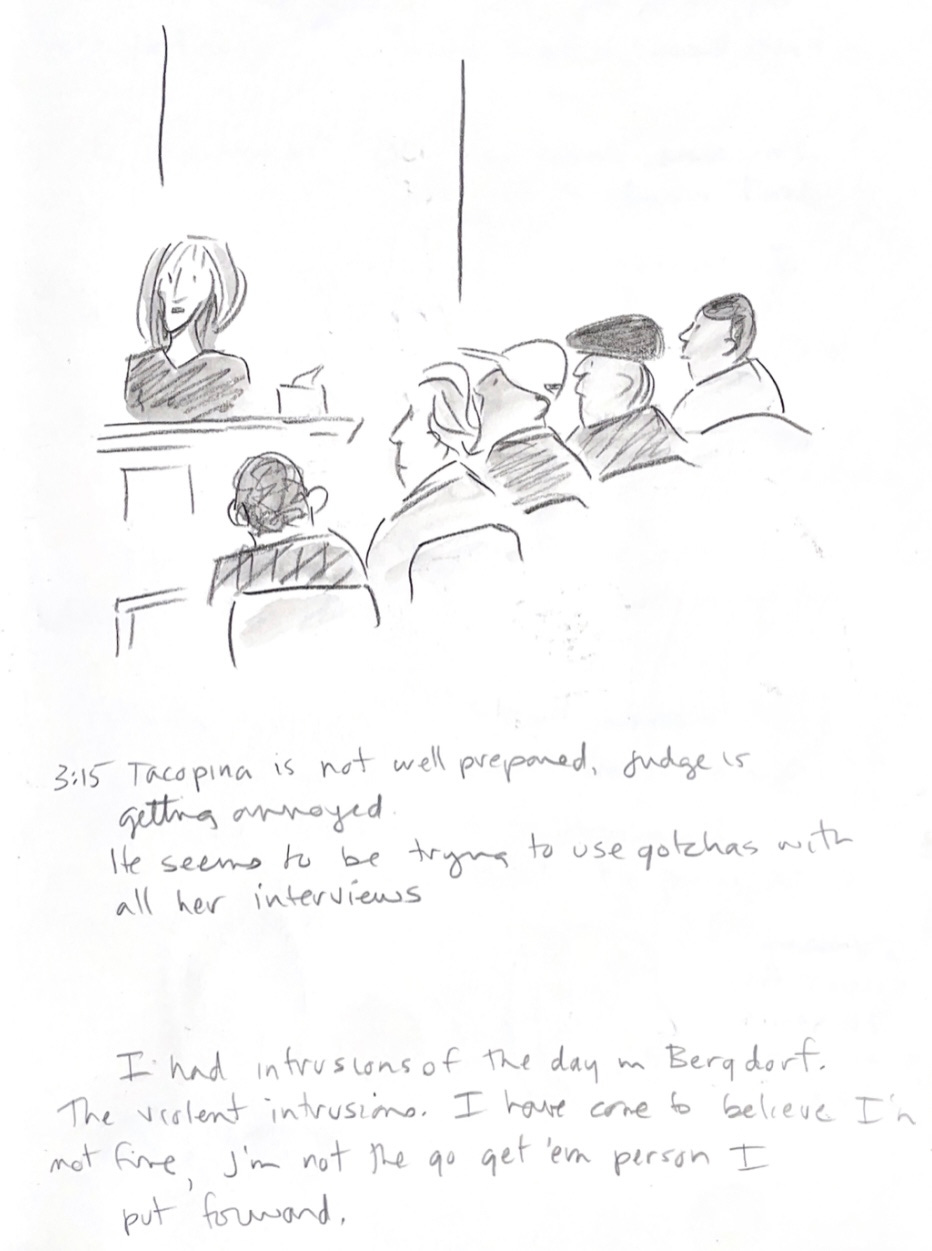 3:15 Tacopina is not well prepared, judge is
getting annoyed.
He seems to be trying to use gotchas with
all her interviews
I had intrusions of the day in Bergdorf.
The violent intrusions. I have come to believe I'm
not fine, I'm not the go get 'em person I
put forward.